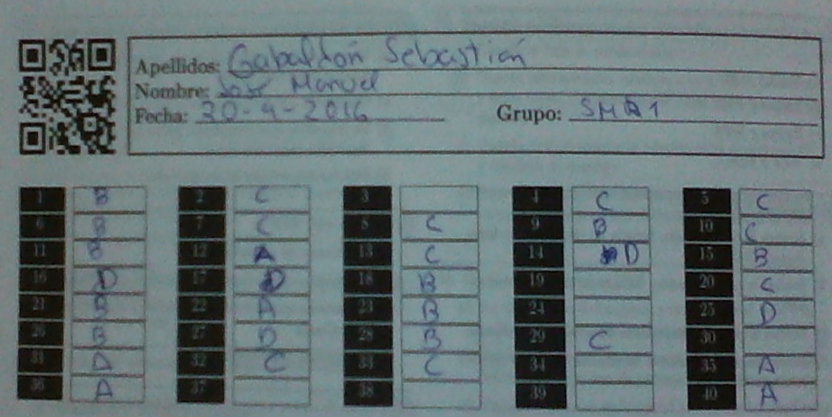 Apellidos: Gabaldón Sebastián
Nombre: José Manuel
Fecha: 20-4-2016 Grupo: SMR1
1 B 2 C 3 4 C 5 C
6 B 7 C 8 C 9 B 10 C
11 B 12 A 13 C 14 D 15 B
16 D 17 D 18 B 19 20 C
21 B 22 A 23 B 24 25 D
26 B 27 D 28 B 29 C 30
31 D 32 C 33 C 34 35 A
36 A 37 38 39 40 A